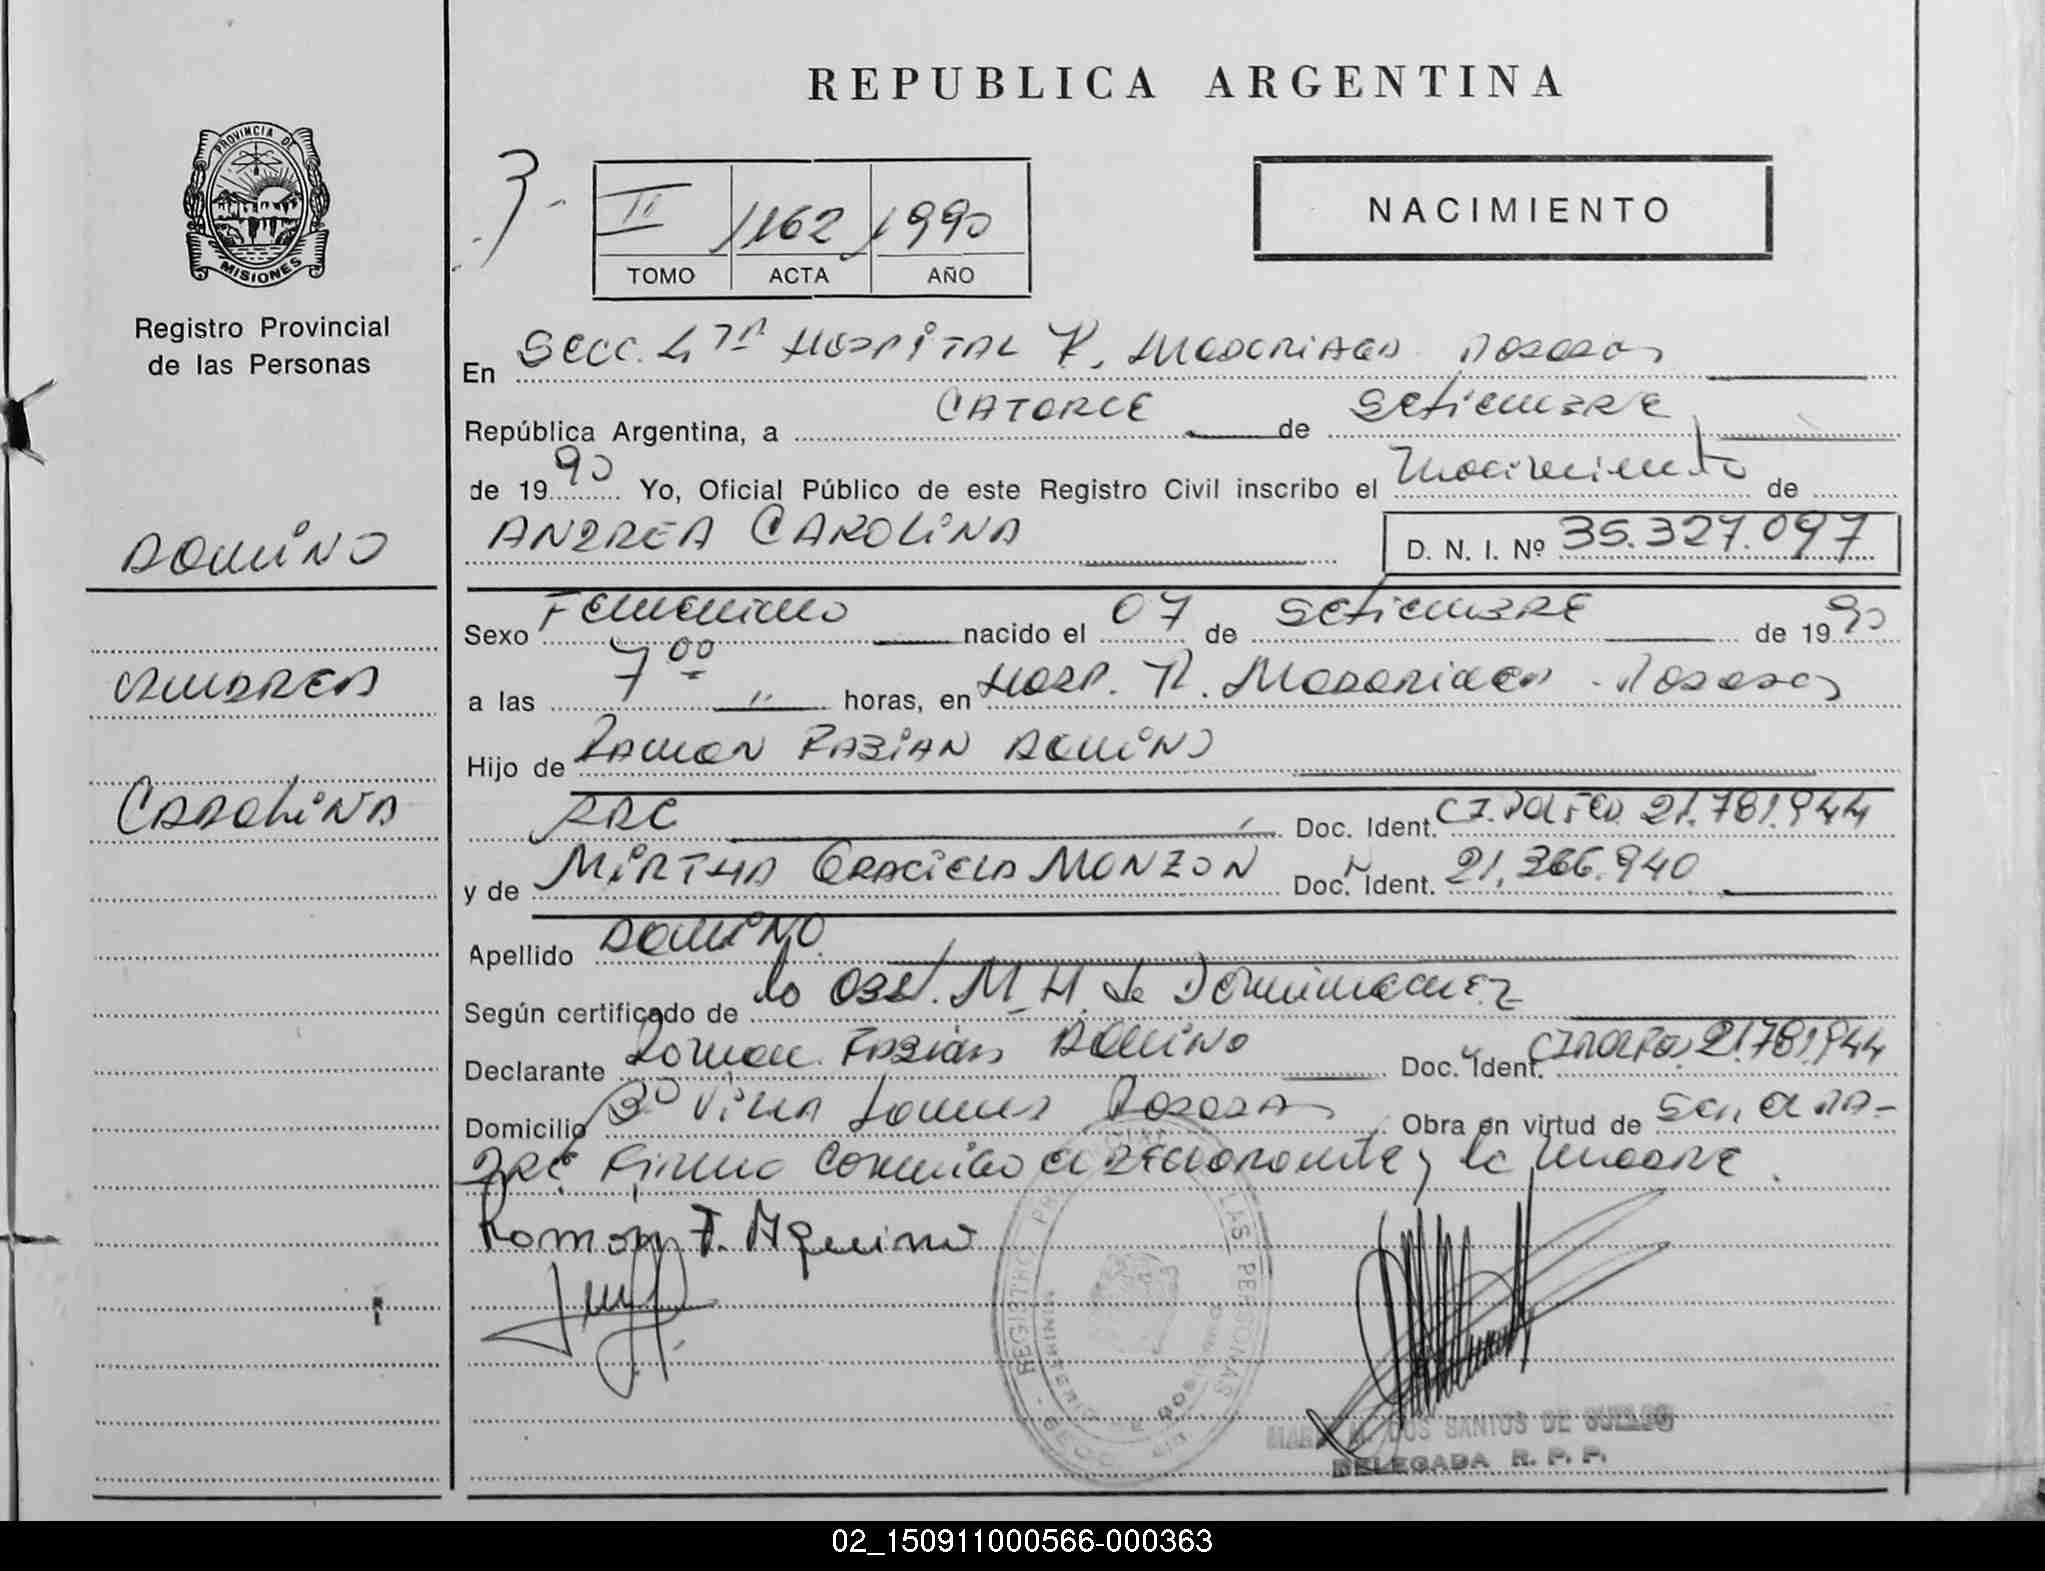 REPUBLICA ARGENTINA
PROVINCIA DE
MISIONES
Registro Provincial
de las Personas
3-
II 1162 1990
TOMO ACTA AÑO
NACIMIENTO
En Secc. 4ta Hospital R. Madariaga Posadas
República Argentina, a CATORCE de Setiembre
de 1990 Yo, Oficial Público de este Registro Civil inscribo el Nacimiento de
ANDREA CAROLINA D. N. I. Nº 35.327.097
Sexo Femenino nacido el 07 de Setiembre de 1990
a las 7 00 horas, en Hosp. R. Madariaga - Posadas
Hijo de Ramon Fabian Aquino
Doc. Ident. 21.781.944
y de MIRTHA GRACIELA MONZON Doc. Ident. 21.366.940
Apellido AQUINO
Según certificado de la Obst. M. H. de Dominguez
Declarante Ramon Fabian Aquino Doc. Ident. 21.781.944
Domicilio Bº Villa Posadas Obra en virtud de ser el pa-
dre Firma conmigo el declarante y la madre.
Ramon F. Aquino
AQUINO
ANDREA
CAROLINA
REGISTRO LAS PERSONAS
DOS SANTOS DE
DELEGADA R. P. P.
02_150911000566-000363